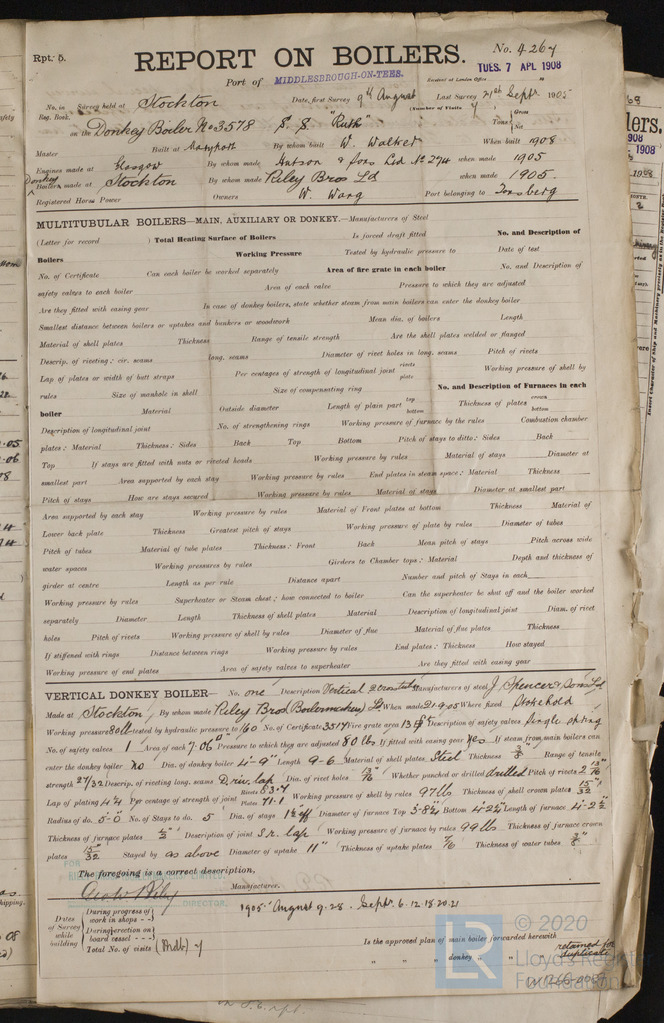 Rpt. 5.
REPORT ON BOILERS.
No. 4267
Port of MIDDLESBROUGH-ON-TEES.
Received at London Office TUES. 7 APL 1908
No. in Survey held at Stockton Date, first Survey 9th August Last Survey 21st Septr. 1905
Reg. Book. (Number of Visits 7)
on the Donkey Boiler No 3578 S. S. "Ruth" Tons Gross Net
Master Built at Maryport By whom built W. Walker When built 1908
Engines made at Glasgow By whom made Hutson & Sons Ltd No 294 when made 1905
Donkey Boilers made at Stockton By whom made Riley Bros Ld when made 1905.
Registered Horse Power Owners W. Warg Port belonging to Tonsberg
MULTITUBULAR BOILERS—MAIN, AUXILIARY OR DONKEY.—Manufacturers of Steel
(Letter for record ) Total Heating Surface of Boilers Is forced draft fitted No. and Description of
Boilers Working Pressure Tested by hydraulic pressure to Date of test
No. of Certificate Can each boiler be worked separately Area of fire grate in each boiler No. and Description of
safety valves to each boiler Area of each valve Pressure to which they are adjusted
Are they fitted with easing gear In case of donkey boilers, state whether steam from main boilers can enter the donkey boiler
Smallest distance between boilers or uptakes and bunkers or woodwork Mean dia. of boilers Length
Material of shell plates Thickness Range of tensile strength Are the shell plates welded or flanged
Descrip. of riveting: cir. seams long. seams Diameter of rivet holes in long. seams Pitch of rivets
Lap of plates or width of butt straps Per centages of strength of longitudinal joint rivets plate Working pressure of shell by
rules Size of manhole in shell Size of compensating ring No. and Description of Furnaces in each
boiler Material Outside diameter Length of plain part top bottom Thickness of plates crown bottom
Description of longitudinal joint No. of strengthening rings Working pressure of furnace by the rules Combustion chamber
plates: Material Thickness: Sides Back Top Bottom Pitch of stays to ditto: Sides Back
Top If stays are fitted with nuts or riveted heads Working pressure by rules Material of stays Diameter at
smallest part Area supported by each stay Working pressure by rules End plates in steam space: Material Thickness
Pitch of stays How are stays secured Working pressure by rules Material of stays Diameter at smallest part
Area supported by each stay Working pressure by rules Material of Front plates at bottom Thickness Material of
Lower back plate Thickness Greatest pitch of stays Working pressure of plate by rules Diameter of tubes
Pitch of tubes Material of tube plates Thickness: Front Back Mean pitch of stays Pitch across wide
water spaces Working pressures by rules Girders to Chamber tops: Material Depth and thickness of
girder at centre Length as per rule Distance apart Number and pitch of Stays in each
Working pressure by rules Superheater or Steam chest; how connected to boiler Can the superheater be shut off and the boiler worked
separately Diameter Length Thickness of shell plates Material Description of longitudinal joint Diam. of rivet
holes Pitch of rivets Working pressure of shell by rules Diameter of flue Material of flue plates Thickness
If stiffened with rings Distance between rings Working pressure by rules End plates: Thickness How stayed
Working pressure of end plates Area of safety valves to superheater Are they fitted with easing gear
VERTICAL DONKEY BOILER— No. one Description Vertical 2 crosstubes Manufacturers of steel J. Spencer & Sons Ld
Made at Stockton By whom made Riley Bros (Boilermakers) Ld When made 21.9.05 Where fixed Stokehold
Working pressure 80 lb tested by hydraulic pressure to 160 No. of Certificate 3517 Fire grate area 13 Description of safety valves Single spring
No. of safety valves 1 Area of each 7.06 Pressure to which they are adjusted 80 lbs If fitted with easing gear yes If steam from main boilers can
enter the donkey boiler no Dia. of donkey boiler 4'-9" Length 9-6 Material of shell plates Steel Thickness 3/8" Range of tensile
strength 27/32 Descrip. of riveting long. seams D. riv. lap Dia. of rivet holes 13/16" Whether punched or drilled drilled Pitch of rivets 2 13/16"
Lap of plating 4 1/4 Per centage of strength of joint Rivets 83.7 Plates 71.1 Working pressure of shell by rules 97 lbs Thickness of shell crown plates 15/32"
Radius of do. 5'-0" No. of Stays to do. 5 Dia. of stays 1 1/2" eff Diameter of furnace Top 3-8 1/4 Bottom 4-2 1/4 Length of furnace 4-2 1/2"
Thickness of furnace plates 1/2" Description of joint S.r. lap Working pressure of furnace by rules 99 lbs Thickness of furnace crown
plates 15/32" Stayed by as above Diameter of uptake 11" Thickness of uptake plates 7/16 Thickness of water tubes 3/8"
The foregoing is a correct description,
Geo W Riley Manufacturer.
DIRECTOR.
Dates of Survey while building
During progress of work in shops - - 1905: August 9. 28. Septr. 6. 12. 18. 20. 21
During erection on board vessel - - -
Total No. of visits 7
Is the approved plan of main boiler forwarded herewith
" " " donkey " " " returned for duplicate
© 2020
Lloyd's Register
Foundation
W1260-0087